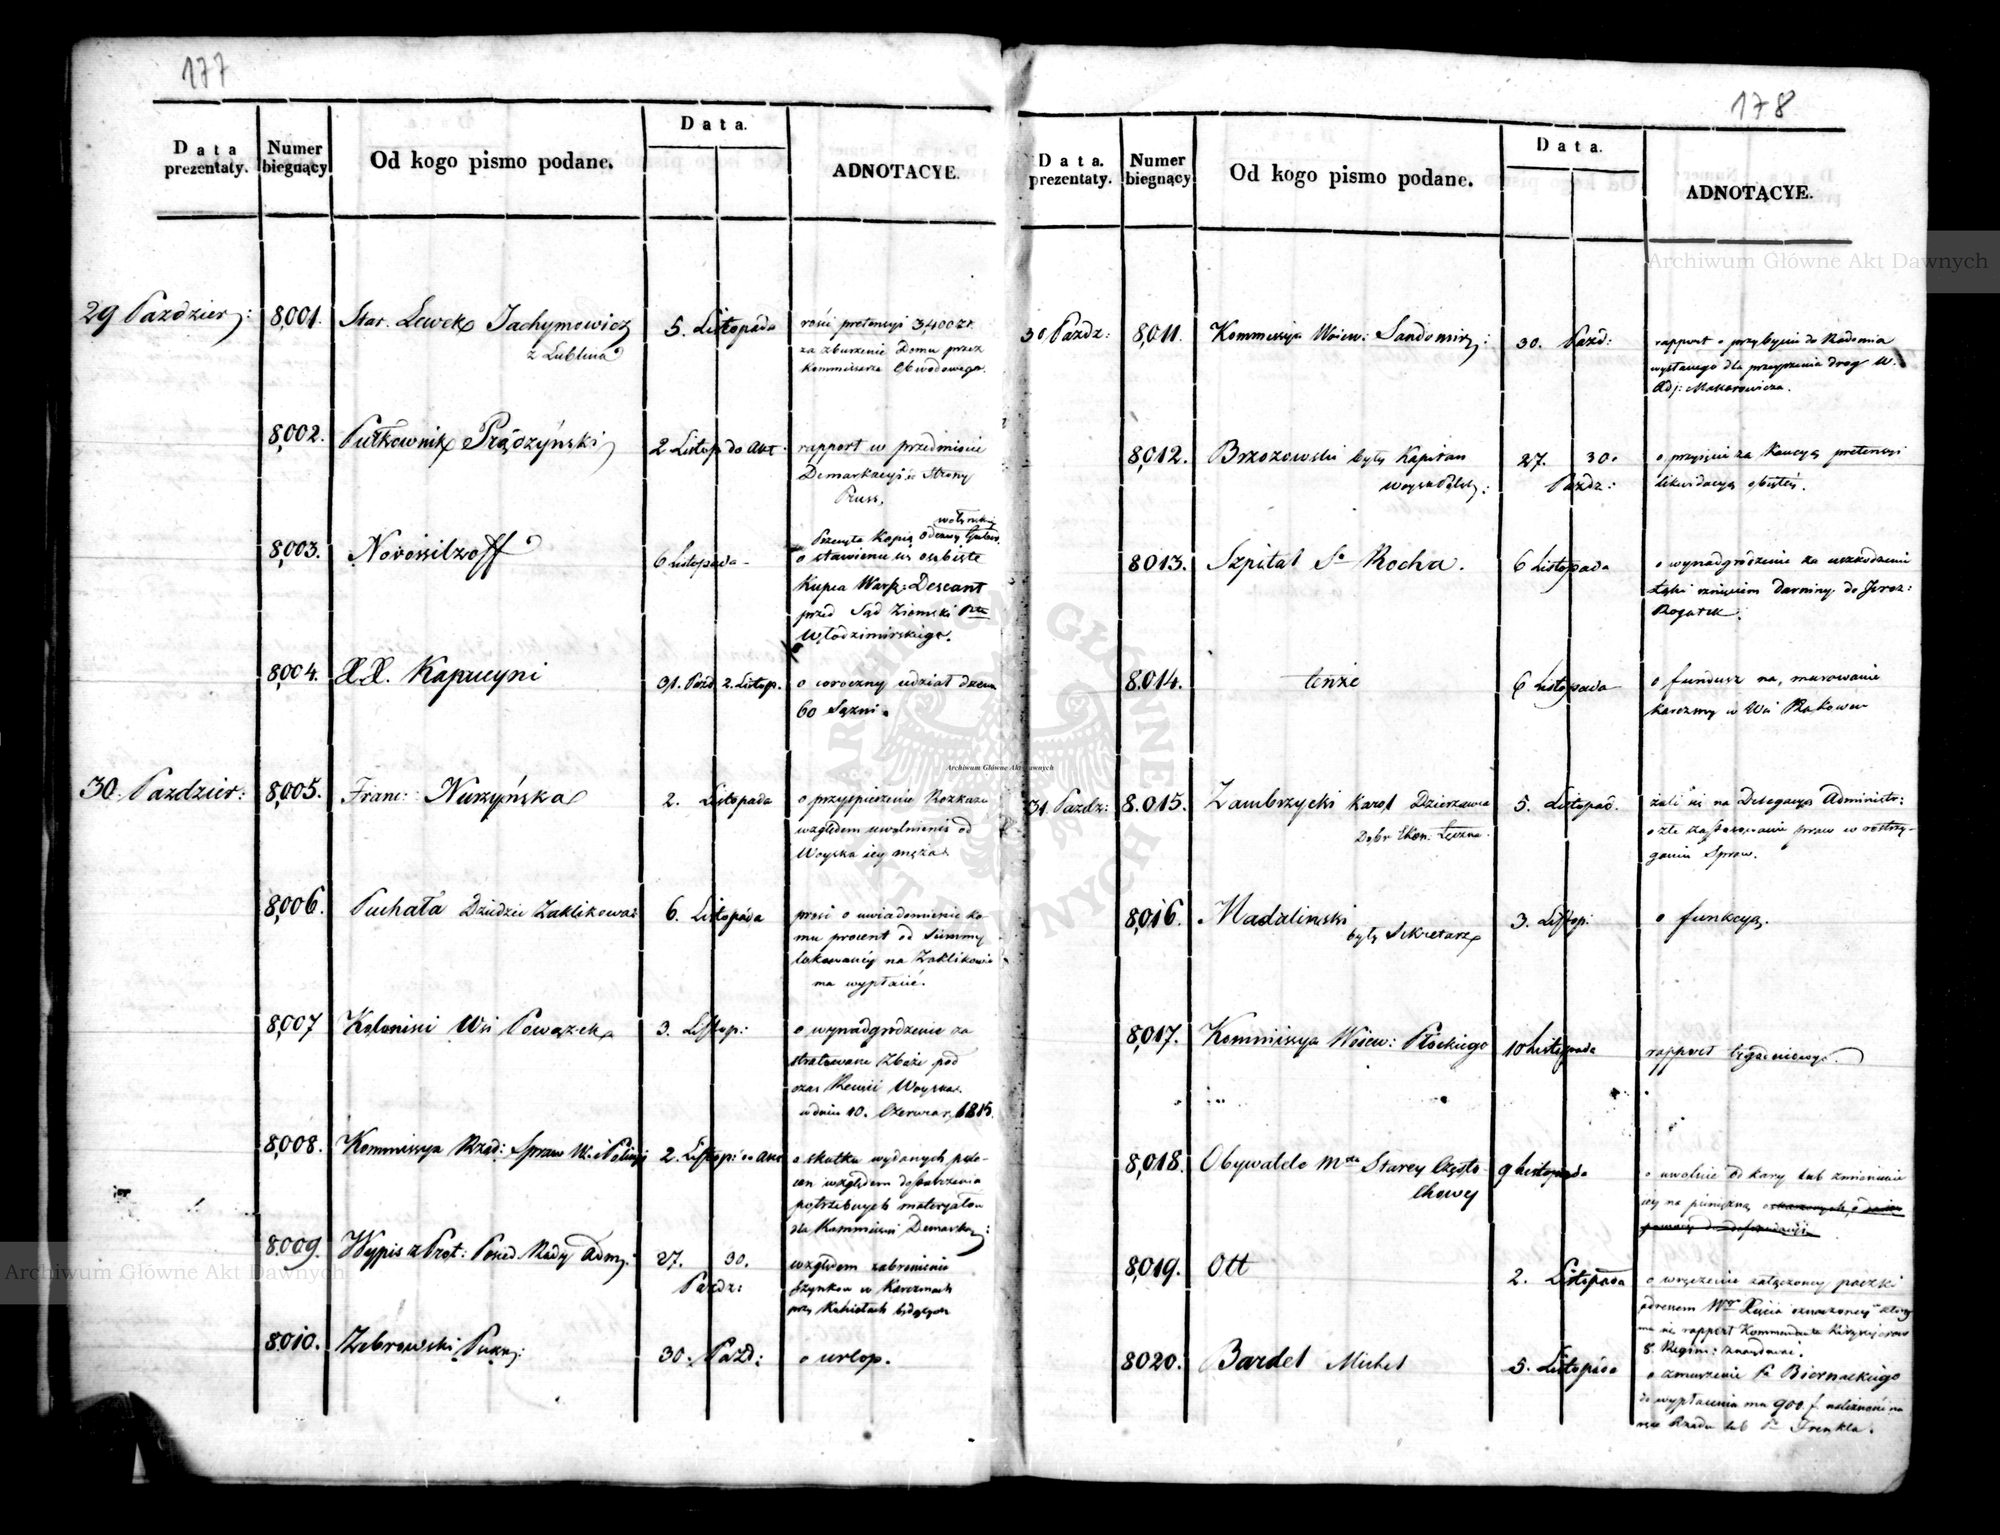 177
Data prezentaty.
Numer biegnący
Od kogo pismo podane.
Data.
ADNOTACYE.
29 Pazdzier:
8,001.
Star. Lewek Jachymowicz
z Lublina
5. Listopada
rości pretensyi 3,400 zł.
za zburzenie Domu przez
Kommissarza Obwodowego.
8,002.
Pułkownik Prądzyński
2 Listop do Akt
rapport w przedmiocie
Demarkacyi Strony
Prus.
8,003.
Novossilzoff
6 Listopada
Przesyła Kopią Odezwy Gubern.
wołyńskiy
o stawienie się osobiste
Kupca Descant
przed Sąd Ziemski
Włodzimirskiego.
8,004.
XX. Kapucyni
31. Pazd. 2. Listop.
o coroczny udział drzewa
60 Sążni.
30. Pazdzier:
8,005.
Franc: Nurzyńska
2. Listopada
o przyspieszenie Rozkazu
względem uwolnienia od
Woyska iey męża
8,006.
Puchała Dziedzic Zaklikowa
6. Listopada
prosi o uwiadomienie ko-
mu procent od Summy
lokowaney na Zaklikowie
ma wypłacić.
8,007
Koloniści Wsi Powązek
3. Listop:
o wynadgrodzenie za
stratowane Zboże pod
czas Rewii Woyska
w dniu 10. Czerwca 1815.
8,008.
Kommissya Rząd: Spraw W. i Policyi
2. Listop: do Akt
o skutku wydanych pole-
ceń względem dostarczenia
potrzebnych materyałów
dla Kommissii Demarkac:
8,009.
Wypis z Prot: Posied. Rady Adm:
27. 30.
Pazdz:
względem zabronienia
Szynków w Karczmach
przy Kościołach będących
8,010.
Zebrowski
30. Pazd:
o urlop.
178
Data. prezentaty.
Numer biegnący
Od kogo pismo podane.
Data.
ADNOTACYE.
30 Pazdz:
8,011.
Kommissya Woiew: Sandomirs:
30. Pazd:
rapport o przybyciu do Radomia
wysłanego dla przeyrzenia drog W.
Adj: Makarowicza.
8,012.
Brzozowski były Kapitan
Woysk Polsk:
27. 30.
Pazdz:
o przyięcie za Kaucyą pretensyi
likwidacyą obiętey.
8013.
Szpital So Rocha.
6 Listopada
o wynadgrodzenie za uszkodzenie
łąki rznięciem Darniny do Jeroz:
Rogatek.
8,014.
tenże
6 Listopada
o fundusz na murowanie
karczmy w Wsi Rakowcu
31 Pazdz:
8.015.
Zambrzycki Karol Dzierzawca
Dobr Ekon. Łęczna.
5. Listopad.
żali się na Delegacyą Administr:
o złe zastosowanie praw w rostrzy-
ganiu Spraw.
8,016.
Madalinski
były Sekretarz
3. Listop:
o funkcyą.
8,017.
Kommissya Woiew: Płockiego
10 Listopada
rapport tygodniowy.
8,018.
Obywatele Mta Starey Często-
chowy
9 Listopada
o uwolnie od kary lub zmienienie
iey na pieniężną
8,019.
Ott
2. Listopada
o wręczenie załączoney paczki
adresem Xięcia oznaczoney
ma się rapport Kommendanta Kirysyerow
8. Regim: znaydować.
8020.
Bardet Michel
5. Listopada
o zmuszenie Pa Biernackiego
do wypłacenia mu 900. f. należności na
ręce Rządu lub Pa Frenkla.
Archiwum Główne Akt Dawnych
Archiwum Główne Akt Dawnych
Archiwum Główne Akt Dawnych
ARCHIWUM GŁÓWNE AKT DAWNYCH